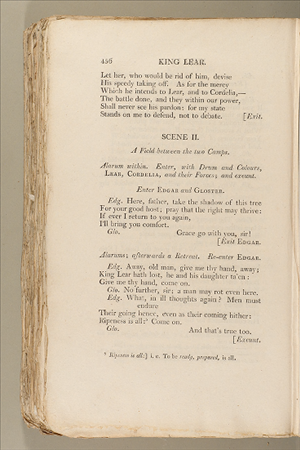 456 KING LEAR.
Let her, who would be rid of him, devise
His speedy taking off. As for the mercy
Which he intends to Lear, and to Cordelia,—
The battle done, and they within our power,
Shall never see his pardon: for my state
Stands on me to defend, not to debate. [Exit.
SCENE II.
A Field between the two Camps.
Alarum within. Enter, with Drum and Colours,
LEAR, CORDELIA, and their Forces; and exeunt.
Enter EDGAR and GLOSTER.
Edg. Here, father, take the shadow of this tree
For your good host; pray that the right may thrive:
If ever I return to you again,
I'll bring you comfort.
Glo. Grace go with you, sir!
[Exit EDGAR.
Alarums; afterwards a Retreat. Re-enter EDGAR.
Edg. Away, old man, give me thy hand, away;
King Lear hath lost, he and his daughter ta'en:
Give me thy hand, come on.
Glo. No further, sir; a man may rot even here.
Edg. What, in ill thoughts again? Men must
endure
Their going hence, even as their coming hither:
Ripeness is all:² Come on.
Glo. And that's true too.
[Exeunt.
² Ripeness is all:] i. e. To be ready, prepared, is all.